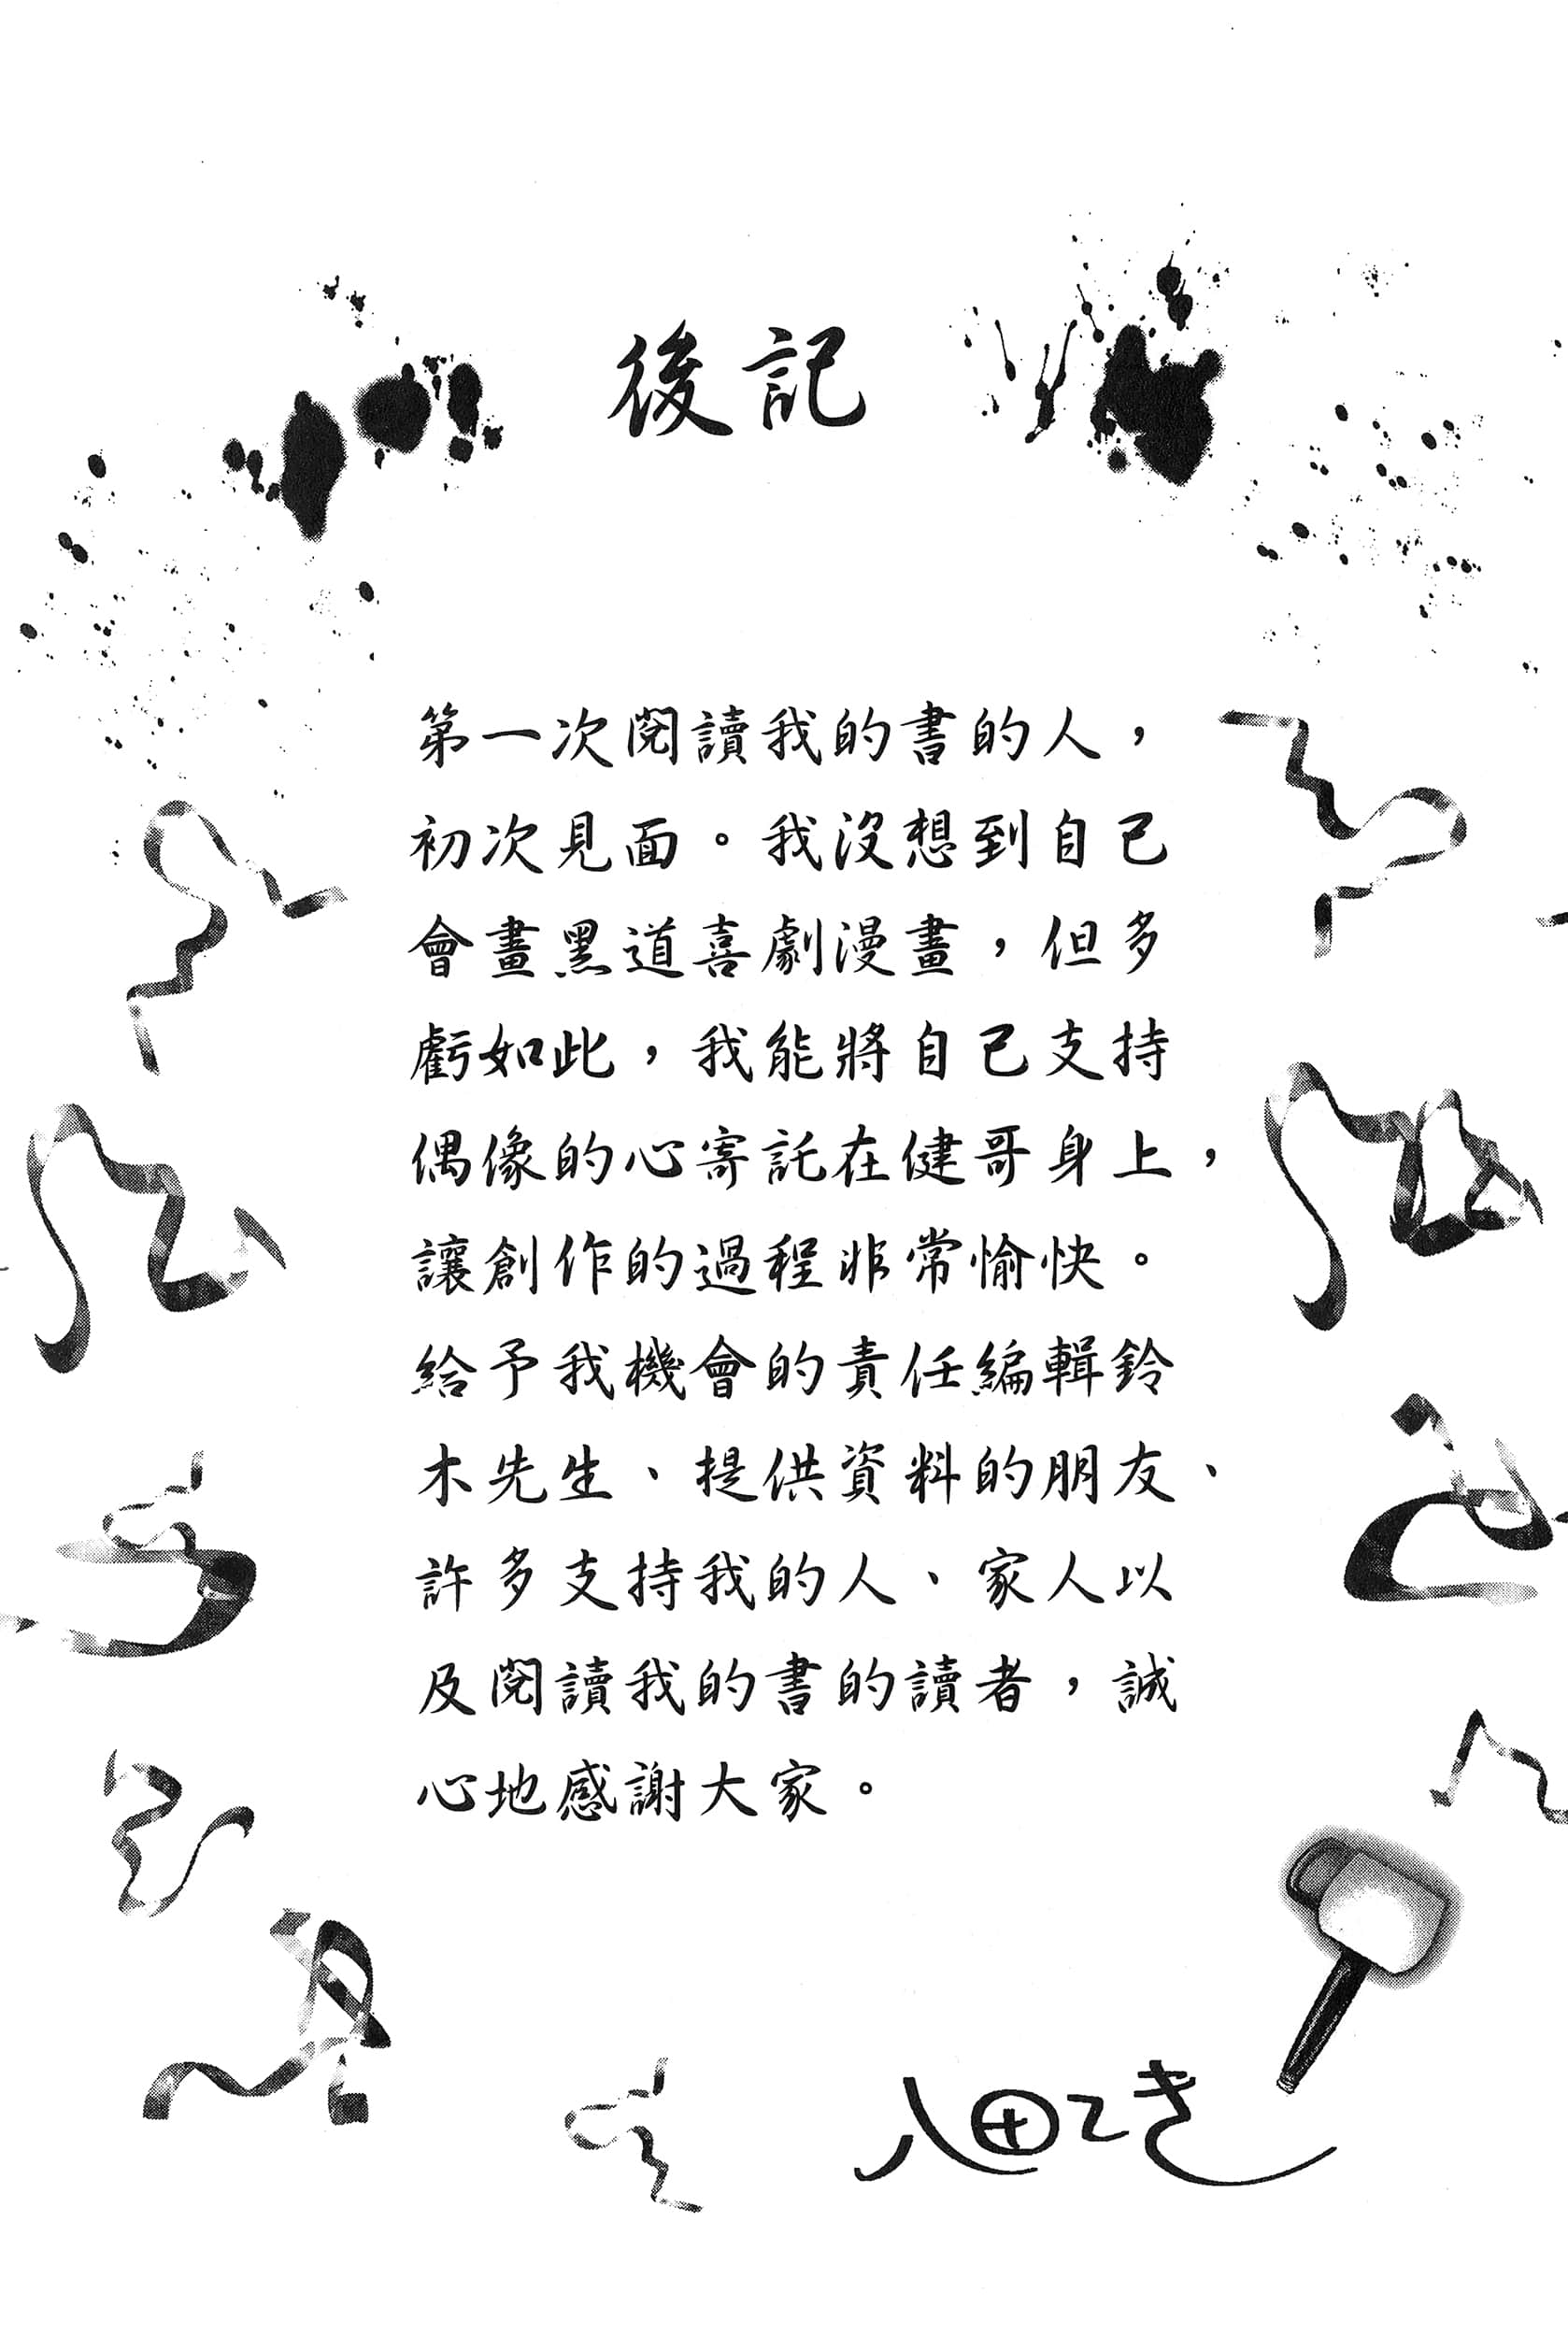 後記
第一次閱讀我的書的人，
初次見面。我沒想到自己
會畫黑道喜劇漫畫，但多
虧如此，我能將自己支持
偶像的心寄託在健哥身上，
讓創作的過程非常愉快。
給予我機會的責任編輯鈴
木先生、提供資料的朋友、
許多支持我的人、家人以
及閱讀我的書的讀者，誠
心地感謝大家。
八田てき